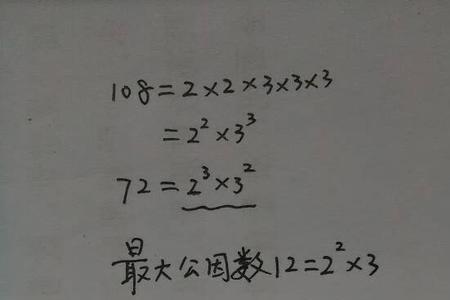 108=2×2×3×3×3
=2²×3³
72=2³×3²
最大公因数12=2²×3